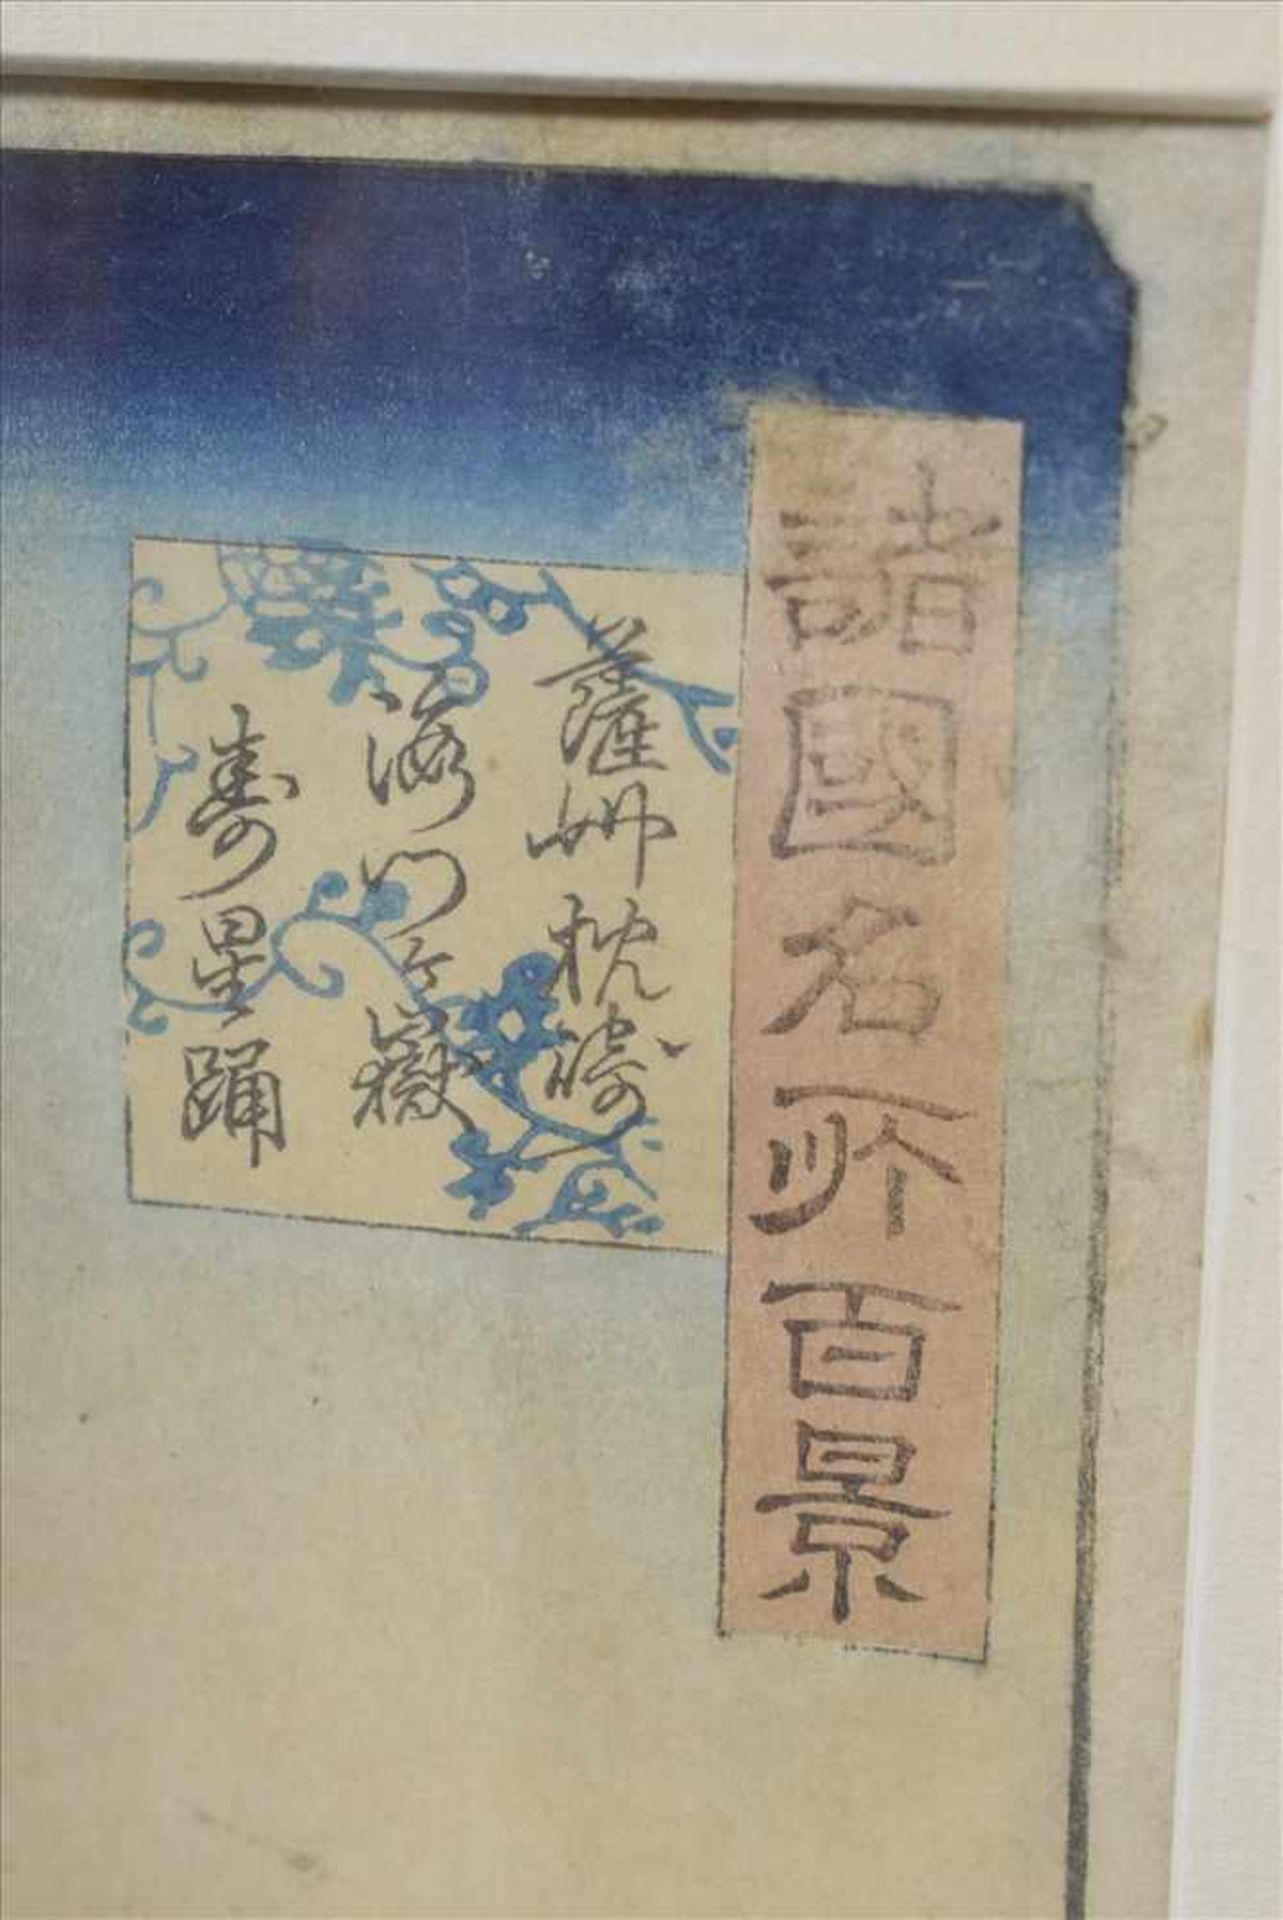 諸國名所百景
薩州枕崎
海門ヶ嶽
壽星踊